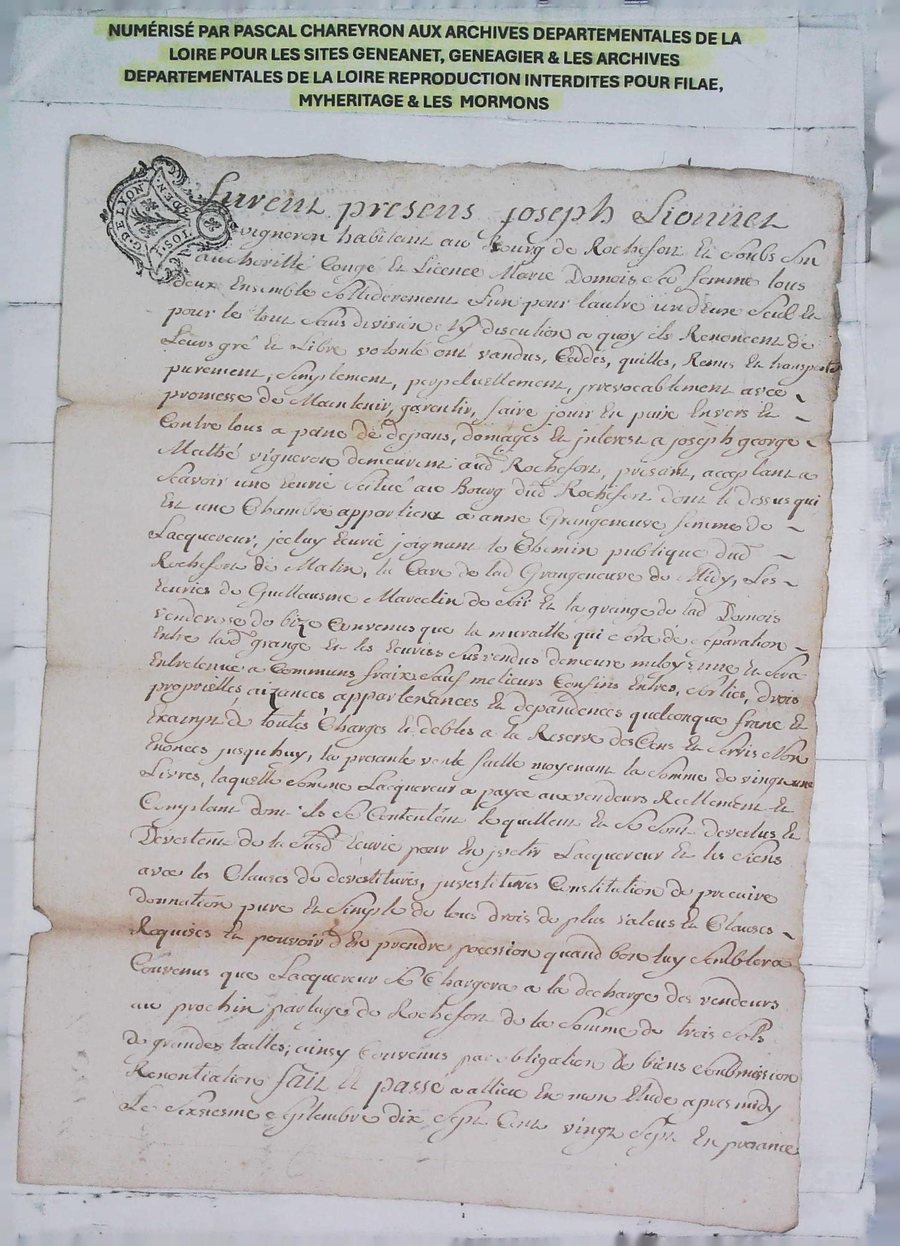 NUMÉRISÉ PAR PASCAL CHAREYRON AUX ARCHIVES DEPARTEMENTALES DE LA
LOIRE POUR LES SITES GENEANET, GENEAGIER & LES ARCHIVES
DEPARTEMENTALES DE LA LOIRE REPRODUCTION INTERDITES POUR FILAE,
MYHERITAGE & LES MORMONS
G. DE LYON
1. SOL
Furent presens joseph Lionnet
vigneron habitant au Bourg de Rochefort et soubs son
authorité Congé et Licence Marie Domois sa femme tous
deux Ensemble sollidérement l'un pour l'autre un d'eux seul et
pour le tout sans division discution a quoy ils Renoncent de
Leurs gré et Libre volonté ont vandus, Ceddés, quittes, Remis et transporté
purement, simplement, perpetuellement, jrrevocablement avec
promesse de Maintenir, garentir, faire jouir En paix Envers et
Contre tous a peine de depans, domages et interest a joseph george
Mathé vigneron demeurent aud. Rochefort, présent, acceptant a
scavoir une Ecurie scitué au Bourg dud. Rochefort dont le dessus qui
Est une Chambre appartient a anne Grangeneuve femme de
Lacquereur, jceluy Ecurie joignant le Chemin publique dud.
Rochefort de Matin, la Cave de lad. Grangeneuve de Midy, Les
Ecuries de Guillausme Marcelin de soir et la grange de lad. Domois
venderese de bize Convenus que la muraille qui sera de separation
Entre lad. grange et les Ecuries sus vendus demeure mitoyenne et sera
Entretenue a Communs fraix sauf melieurs Confins Entres, sorties, drois
proprietés aizances appartenances et dépandences quelconque franc et
Exampt de toutes Charges et debtes a la Reserve des Cens et servis Non
Enoncés jusqu'huy, la présante vente faitte moyenant la somme de vingt une
Livres, laquelle somme Lacquereur a payée aux vendeurs Reellement et
Comptant dont ils se Contentent le quittent et se sont devestus et
Devestent de la susd. Ecurie pour En jvetir Lacquereur et les siens
avec les Clauses de devestitures, jnvestitures Constitution de precaire
donnation pure et simple de tous drois de plus values et Clauses
Requises et pouvoir d'En prendre pocession quand bon luy semblera
Convenus que Lacquereur se Chargera a la decharge des vendeurs
au prochin partage de Rochefort de la somme de trois sols
de grandes tailles; ainsy Convenus par obligation de biens soubmission
Renontiation fait et passé a allieu En mon Etude apres midy
Le sixsiesme septembre dix sept Cent vingt sept En presance